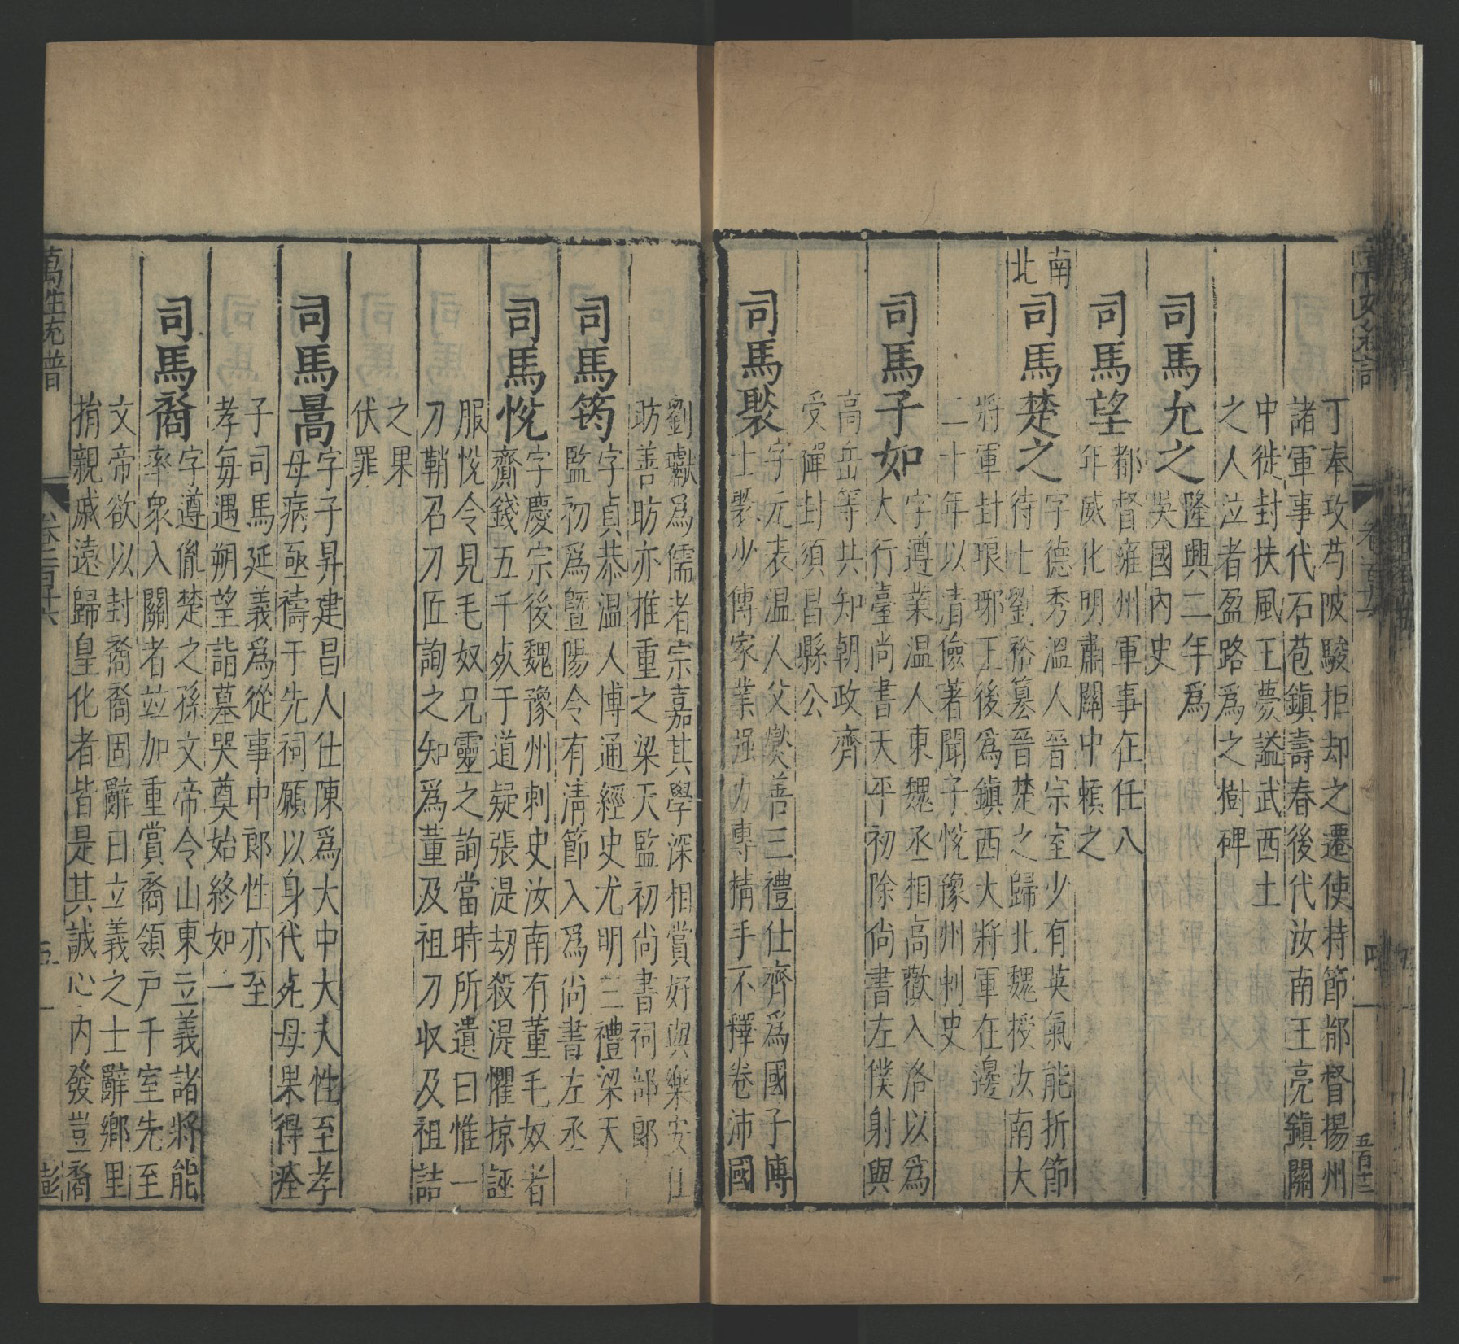 丁奉攻芍陂駿拒却之遷使持節都督揚州
諸軍事代石苞鎮壽春後代汝南王亮鎮關
中徙封扶風王夢謚武西土
之人泣者盈路爲之樹碑
司馬允之
隆興二年爲
吳國內史
司馬望
都督雍州軍事在任八
年威化明肅關中賴之
南北
司馬楚之
字德秀溫人晉宗室少有英氣能折節
待士劉裕篡晉楚之歸北魏授汝南大
將軍封琅琊王後爲鎮西大將軍在邊
二十年以清儉著聞子悅豫州刺史
司馬子如
字遵業温人東魏丞相高歡入洛以爲
大行臺尚書天平初除尚書左僕射與
高岳等共知朝政齊
受禪封須昌縣公
司馬褧
字元表温人父燮善三禮仕齊爲國子博
士褧少傳家業强力專精手不釋卷沛國
劉瓛爲儒者宗嘉其學深相賞好與樂安任
昉善昉亦推重之梁天監初尚書祠部郎
司馬筠
字貞恭温人博通經史尤明三禮梁天
監初爲暨陽令有清節入爲尚書左丞
司馬悅
字慶宗後魏豫州刺史汝南有董毛奴者
齎錢五千死于道疑張湜刼殺湜懼掠誣
服悅令見毛奴兄靈之詢當時所遺曰惟一
刀鞘召刀匠詢之知爲董及祖刀收及祖詰
之果
伏罪
司馬暠
字子昇建昌人仕陳爲大中大夫性至孝
母病亟禱于先祠願以身代死母果得痊
子司馬延義爲從事中郎性亦至
孝每遇朔望詣墓哭奠始終如一
司馬裔
字遵胤楚之孫文帝令山東立義諸將能
率衆入關者竝加重賞裔領戶千室先至
文帝欲以封裔裔固辭曰立義之士辭鄉里
捐親戚遠歸皇化者皆是其誠心內發豈裔
萬姓統譜